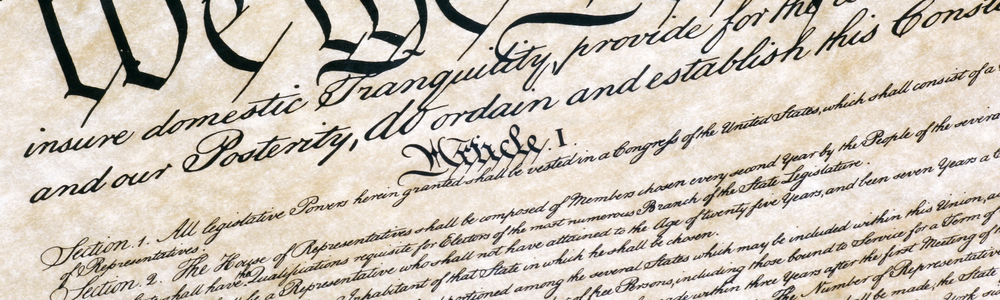 We the Peop
insure domestic Tranquility, provide for the
and our Posterity, do ordain and establish this Const
Article. I.
Section. 1. All legislative Powers herein granted shall be vested in a Congress of the United States, which shall consist of a
of Representatives.
Section. 2. The House of Representatives shall be composed of Members chosen every second Year by the People of the several
shall have the Qualifications requisite for Electors of the most numerous Branch of the State Legislature.
a Representative who shall not have attained to the Age of twenty five Years, and been seven Years a
Inhabitant of that State in which he shall be chosen.
portioned among the several States which may be included within this Union, a
of free Persons, including those bound to Service for a Term of
made within three Years after the first Meeting of
The Number of Representative
shall be made, the State